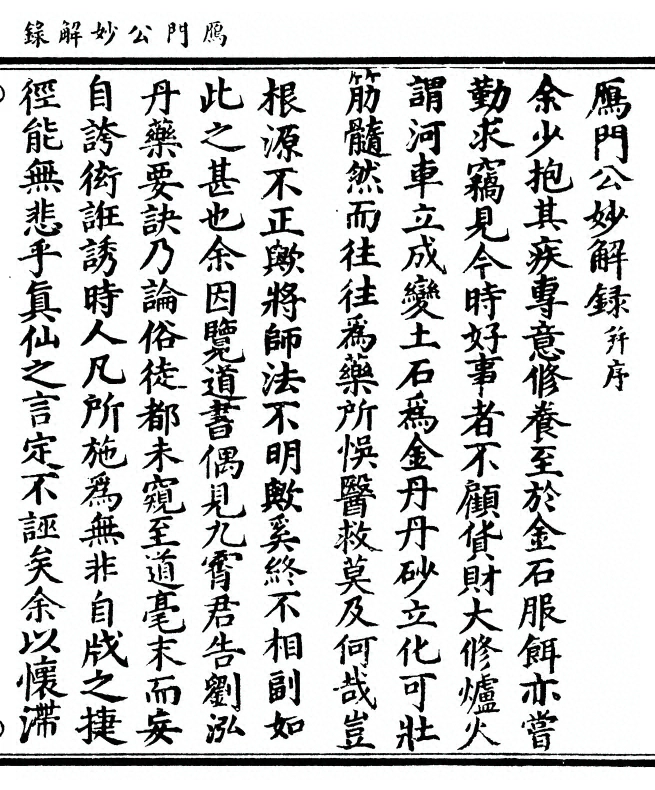 鴈門公妙解錄
鴈門公妙解録并序
余少抱其疾專意修養至於金石服餌亦嘗
勤求竊見今時好事者不顧貨財大修爐火
謂河車立成變土石爲金丹丹砂立化可壯
筋髓然而往往爲藥所悞醫救莫及何哉豈
根源不正歟將師法不明歟奚終不相副如
此之甚也余因覽道書偶見九霄君告劉泓
丹藥要訣乃論俗徒都未窺至道毫末而妄
自誇衒誑誘時人凡所施爲無非自戕之捷
徑能無悲乎真仙之言定不誣矣余以懷滯